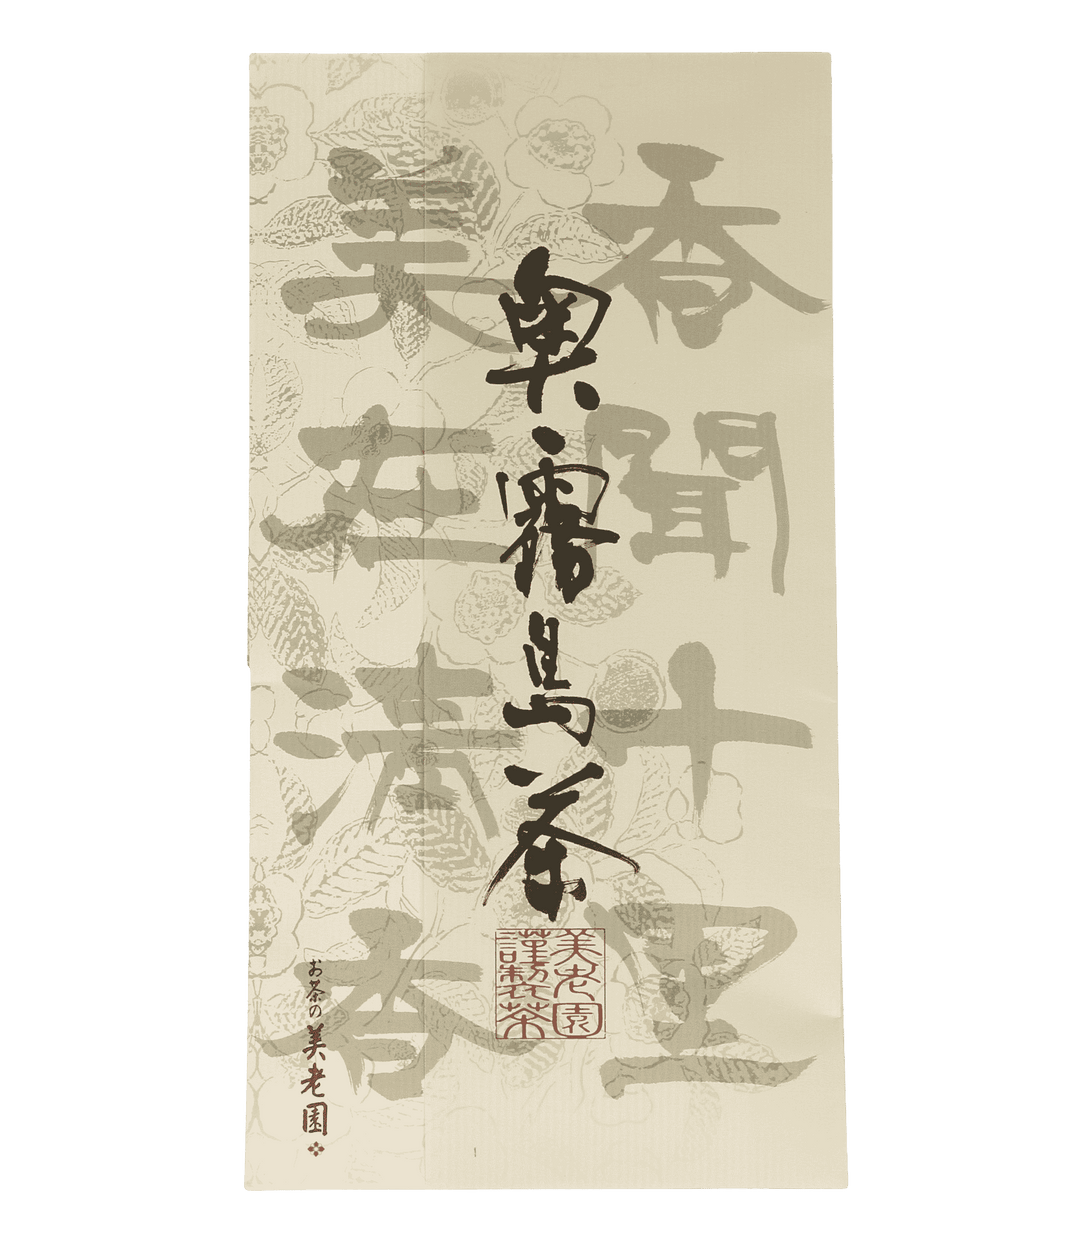 香聞十里
美在清香
奥霧島茶
美老園
謹製茶
お茶の美老園